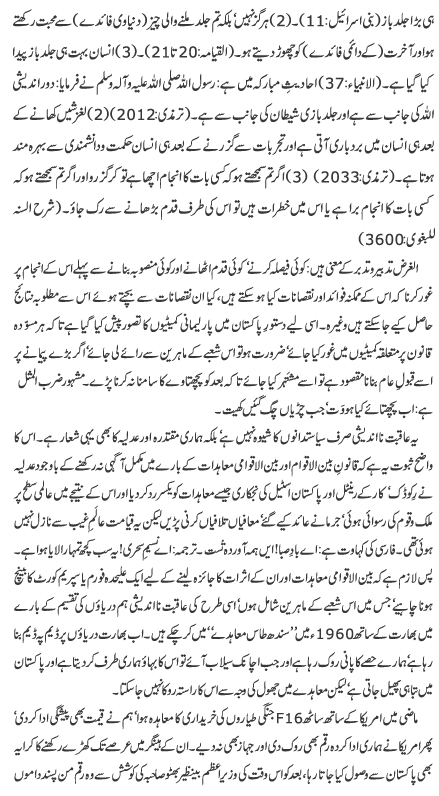 ہی بڑا جلد باز (بنی اسرائیل: 11)۔ (2) ہرگز نہیں‘ بلکہ تم جلد ملنے والی چیز (دنیاوی فائدے) سے محبت رکھتے
ہو اور آخرت (کے دائمی فائدے) کو چھوڑ دیتے ہو۔ (القیامہ: 20 تا 21)۔ (3) انسان بہت ہی جلد باز پیدا
کیا گیا ہے۔ (الانبیاء: 37) احادیثِ مبارکہ میں ہے: رسول اللہ صلی اللہ علیہ وآلہ وسلم نے فرمایا: دور اندیشی
اللہ کی جانب سے ہے اور جلد بازی شیطان کی جانب سے ہے۔ (ترمذی: 2012) (2) لغزشیں کھانے کے
بعد ہی انسان میں بردباری آتی ہے اور تجربات سے گزرنے کے بعد ہی انسان حکمت و دانشمندی سے بہرہ مند
ہوتا ہے۔ (ترمذی: 2033) (3) اگر تم سمجھتے ہو کہ کسی بات کا انجام اچھا ہے تو کر گزرو اور اگر تم سمجھتے ہو کہ
کسی بات کا انجام برا ہے یا اس میں خطرات ہیں تو اس کی طرف قدم بڑھانے سے رک جاؤ۔ (شرح السنہ
للبغوی: 3600)
الغرض تدبیر و تدبر کے معنی ہیں: کوئی فیصلہ کرنے‘ کوئی قدم اٹھانے اور کوئی منصوبہ بنانے سے پہلے اس کے انجام پر
غور کرنا کہ اس کے ممکنہ فوائد اور نقصانات کیا ہو سکتے ہیں‘ کیا ان نقصانات سے بچتے ہوئے اس سے مطلوبہ نتائج
حاصل کیے جا سکتے ہیں وغیرہ۔ اسی لیے دستورِ پاکستان میں پارلیمانی کمیٹیوں کا تصور پیش کیا گیا ہے تاکہ ہر مسوّدہ
قانون پر متعلقہ کمیٹیوں میں غور کیا جائے‘ ضرورت ہو تو اس شعبے کے ماہرین سے رائے لی جائے‘ اگر بڑے پیمانے پر
اسے قبولِ عام بنانا مقصود ہے تو اسے مشتہر کیا جائے تاکہ بعد کو پچھتاوے کا سامنا نہ کرنا پڑے۔ مشہور ضرب المثل
ہے: اب پچھتائے کیا ہووَت‘ جب چڑیاں چگ گئیں کھیت۔
یہ عاقبت نااندیشی صرف سیاستدانوں کا شیوہ نہیں ہے‘ بلکہ ہماری مقتدرہ اور عدلیہ کا بھی یہی شعار ہے۔ اس کا
واضح ثبوت یہ ہے کہ قانونِ بین الاقوام اور بین الاقوامی معاہدات کے بارے میں مکمل آگہی نہ رکھنے کے باوجود عدلیہ
نے رِکوڈک‘ کارکے رینٹل اور پاکستان اسٹیل کی نجکاری جیسے معاہدات کو یکسر رد کر دیا اور اس کے نتیجے میں عالمی سطح پر
ملک و قوم کی رسوائی ہوئی‘ جرمانے عائد کیے گئے‘ معافیاں تلافیاں کرنی پڑیں لیکن یہ قیامت عالَمِ غیب سے نازل نہیں
ہوئی تھی۔ فارسی کی کہاوت ہے: اے بادِ صبا! ایں ہمہ آوردہ تست۔ ترجمہ: اے نسیمِ سحری! یہ سب کچھ تمہارا لایا ہوا ہے۔
پس لازم ہے کہ بین الاقوامی معاہدات اور ان کے اثرات کا جائزہ لینے کے لیے ایک علیحدہ فورم یا سپریم کورٹ کا بینچ
ہونا چاہیے‘ جس میں اس شعبے کے ماہرین شامل ہوں‘ اسی طرح کی عاقبت نااندیشی ہم دریاؤں کی تقسیم کے بارے
میں بھارت کے ساتھ 1960ء میں ’’سندھ طاس معاہدے‘‘ میں کر چکے ہیں۔ اب بھارت دریاؤں پر ڈیم پہ ڈیم بنا
رہا ہے‘ ہمارے حصے کا پانی روک رہا ہے اور جب اچانک سیلاب آئے تو اس کا بہاؤ ہماری طرف کر دیتا ہے اور پاکستان
میں تباہی پھیل جاتی ہے‘ لیکن معاہدے میں جھول کی وجہ سے اس کا راستہ روکا نہیں جا سکتا۔
ماضی میں امریکا کے ساتھ ساٹھ F16 جنگی طیاروں کی خریداری کا معاہدہ ہوا‘ ہم نے قیمت بھی پیشگی ادا کر دی‘
پھر امریکا نے ہماری ادا کردہ رقم بھی روک دی اور جہاز بھی نہ دیے۔ ان کے ہینگر میں عرصے تک کھڑے رکھنے کا کرایہ بھی
پاکستان سے وصول کیا جاتا رہا‘ بعد کو اس وقت کی وزیراعظم بینظیر بھٹو صاحبہ کی کوشش سے وہ رقم من پسند داموں